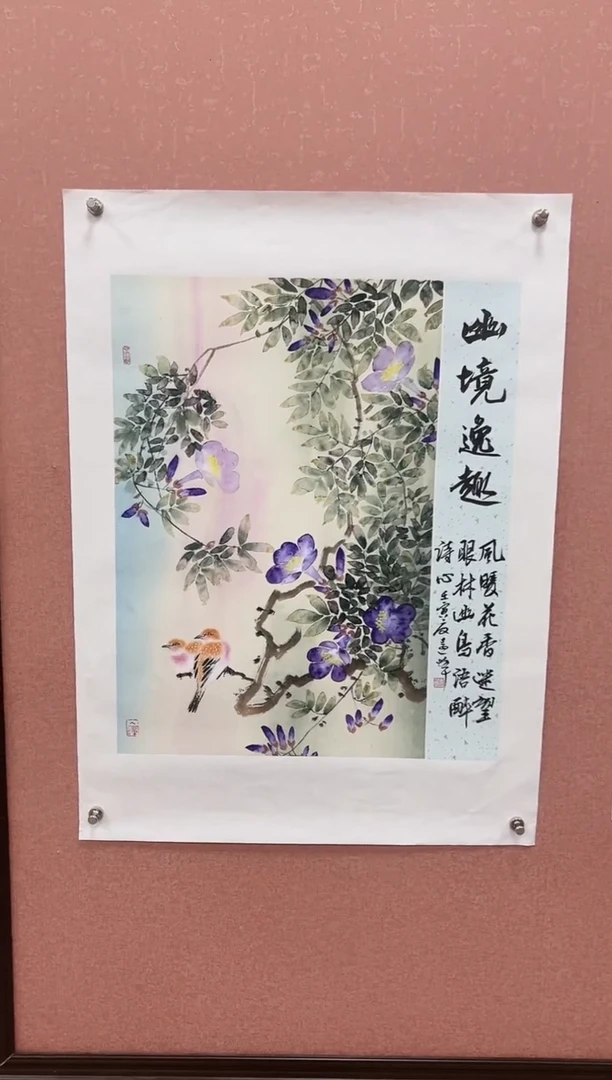 幽境逸趣
風暖花香迷望
眼林幽鳥語醉
詩心壬寅夏